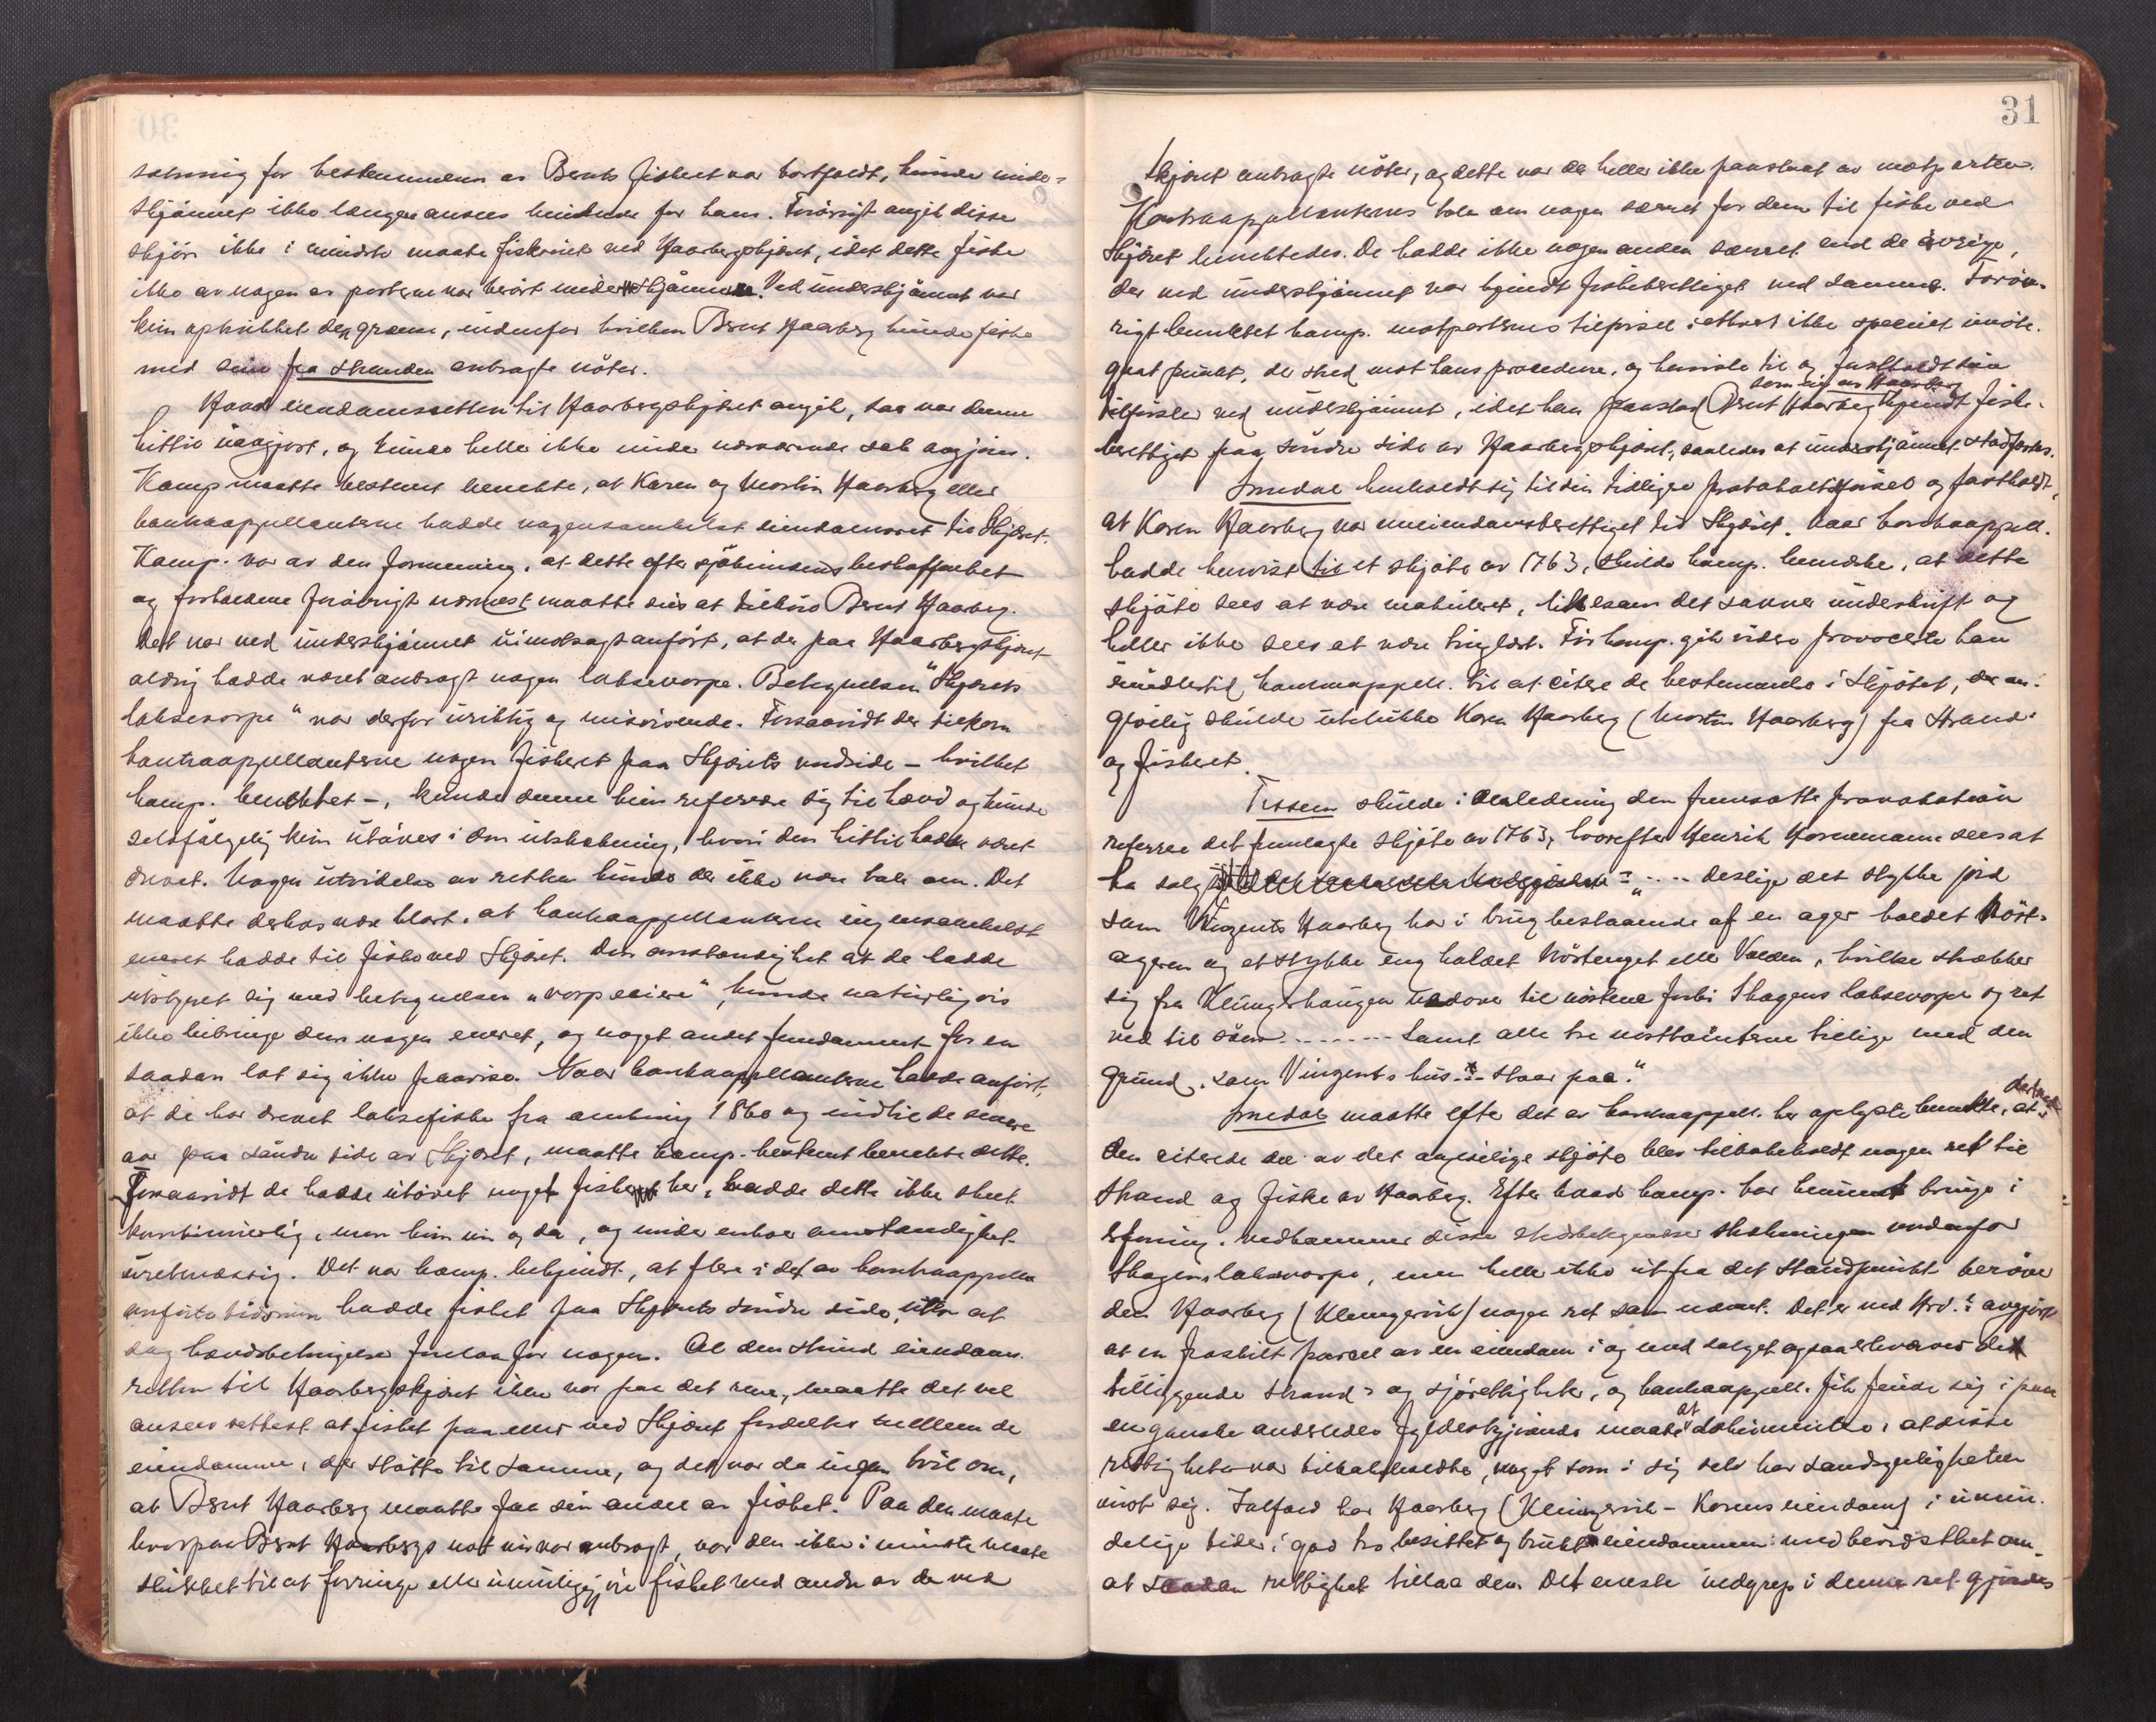 sætning for bestemmelsen av Bernts fiskeret var bortfaldt, kunde under-
skjønnet ikke længer ansees bindende for ham. Forøvrigt angik disse
skjøn ikke i mindste maate fiskeriet ved Haarbergskjæret, idet dette fiske
ikke av nogen av parterne var berørt under skjønnene. Ved underskjønnet var
kun optrukket den grænse, indenfor hvilken Bernt Haarberg kunde fiske
med sine fra stranden anbragte nøter.
Hvad eiendomsretten til Haarbergskjæret angik, saa var denne
hittil uavgjort, og kunde heller ikke under nærværende sak avgjøres.
Kamp maatte bestemt benekte, at Karen og Martin Haarberg eller
kontraappellanterne hadde nogensomhelst eiendomsret til Skjæret.
Kamp. var av den formening, at dette efter sjøbundens beskaffenhet
og forholdene forøvrigt nærmest maatte sies at tilhøre Bernt Haarberg.
Det var ved underskjønnet uimotsagt anført, at der paa Haarbergskjæret
aldrig hadde været anbragt nogen laksevorpe. Betegnelsen "Skjærets
laksevorpe" var derfor uriktig og misvisende. Forsaavidt der tilkom
kontraappellanterne nogen fiskeret paa Skjærets nordside - hvilket
kamp. benektet -, kunde denne kun referere sig til hævd og kunde
selvfølgelig kun utøves i den utstrækning, hvori den hittil hadde været
drevet. Nogen utvidelse av retten kunde der ikke være tale om. Det
maatte derhos være klart, at kontraappellanterne ingensomhelst
eneret hadde til fiske ved Skjæret. Den omstændighet at de hadde
utstyret sig med betegnelsen "vorpeeiere", kunde naturligvis
ikke bibringe dem nogen eneret, og noget andet fundament for en
saadan lot sig ikke paavise. Naar kontraappellanterne hadde anført,
at de har drevet laksefiske fra omkring 1860 og indtil de senere
aar paa søndre side av Skjæret, maatte kamp. bestemt benekte dette.
Forsaavidt de hadde utøvet noget fiske her, hadde dette ikke skeet
kontinuerlig, men kun nu og da, og under enhver omstændighet
uretmæssig. Det var kamp. bekjendt, at flere i det av kontraappell.
anførte tidsrum hadde fisket paa Skjærets søndre side, uten at
dog hævdsbetingelse forelaa for nogen. Al den stund eiendoms-
retten til Haarbergskjæret ikke var paa det rene, maatte det vel
ansees rettest at fisket paa eller ved Skjæret fordeltes mellem de
eiendomme, der støtte til samme, og der var da ingen tvil om,
at Bernt Haarberg maatte faa sin andel av fisket. Paa den maate
hvorpaa Bernt Haarbergs not nu var anbragt, var den ikke i minste maate
skikket til at forringe eller umuliggjøre fisket med andre av de ved
31
Skjæret anbragte nøter, og dette var der heller ikke paastaat av motparten.
Kontraappellanternes tale om nogen særret for dem til fiske ved
Skjæret benektedes. De hadde ikke nogen anden særret end de øvrige,
der ved underskjønnet var kjendt fiskeberettiget ved samme. Forøv-
rigt benektet kamp. motpartens tilførsel i ethvert ikke specielt imøte-
gaat punkt, der stred mot hans procedure, og henviste til og fastholdt sin
som eier av Haarberg
tilførsel ved underskjønnet, idet han paastod Bernt Haarberg kjendt fiske-
berettiget paa søndre side av Haarbergskjæret, saaledes at underskjønnet stadfæstes.
Smedal henholdt sig til sin tidligere protokoltilførsel og fastholdt,
at Karen Haarberg var meeiendomsberettiget til Skjæret. Naar kontraappell.
hadde henvist til et skjøte av 1763, skulde kamp. bemerke, at dette
skjøte sees at være makuleret, likesom det savner underskrift og
heller ikke sees at være tinglæst. Før kamp. gik videre provocerte han
imidlertid kontraappell. til at citere de bestemmelser i Skjøtet, der an-
givelig skulde utelukke Karen Haarberg (Martin Haarberg) fra Strand-
og fiskeret.
Tessem skulde i anledning den fremsatte provokation
referere det fremlagte skjøte av 1763, hvorefter Henrik Hornemann sees at
ha solgt "..... deslige det stykke jord
som Vingents Haarberg har i brug bestaaende af en ager kaldet Nöst-
ageren og et stykke eng kaldet Nöstenget eller Volden, hvilke strækker
sig fra Klungerhaugen nedover til nöstene forbi Skagens laksevorpe og ret
ned til söen ........ Samt alle tre nösttomterne tillige med den
grund, som Vingents hus ... staar paa."
Smedal maatte efter det av kontraappell. her oplyste benekte, at
den citerede del av det angivelige skjøte blev tilbakeholdt nogen ret til
Strand og fiske av Haarberg. Efter hvad kamp. har kunnet bringe i
erfaring, vedkommer disse stedsbetegnelser strækningen nordenfor
Skagens laksevorpe, men heller ikke ut fra det standpunkt berøver
den Haarberg (Klungervik) nogen ret som nævnt. Det er ved Hrd. avgjort
at en fraskilt parcel av en eiendom i og med salget ogsaa erhverver de
tilliggende strand- og sjørettigheter, og kontraappell. fik finde sig i paa
at
en ganske anderledes fyldestgjørende maate dokumentere, at disse
rettigheter var tilbakeholdte, noget som i sig selv har sandsynligheten
imot sig. Ialfald har Haarberg (Klungervik - Karens eiendom) i umin-
delige tider i god tro besittet og brukt eiendommen med bevidsthet om,
at saadan rettighet tillaa den. Det eneste indgrep i denne ret gjordes